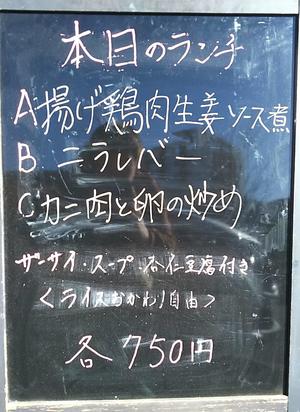 本日のランチ
A 揚げ鶏肉生姜ソース煮
B ニラレバー
C カニ肉と卵の炒め
ザーサイ・スープ・杏仁豆腐付き
<ライスおかわり自由>
各750円